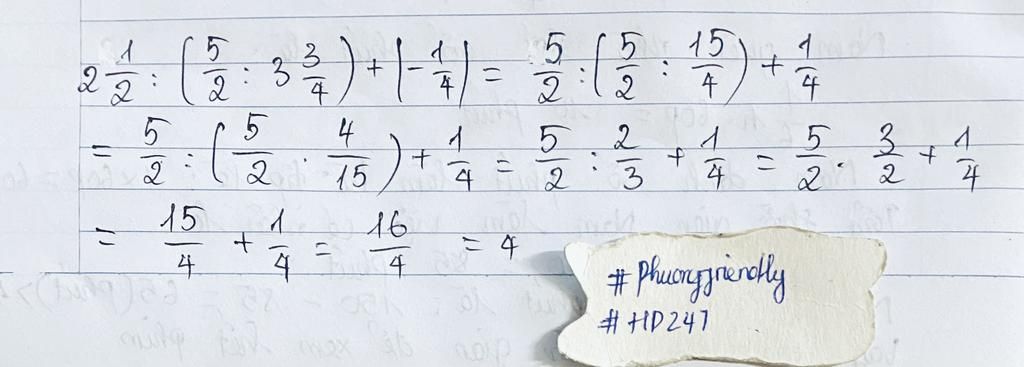 2 1/2 : (5/2 : 3 3/4) + |-1/4| = 5/2 : (5/2 : 15/4) + 1/4
= 5/2 : (5/2 . 4/15) + 1/4 = 5/2 : 2/3 + 1/4 = 5/2 . 3/2 + 1/4
= 15/4 + 1/4 = 16/4 = 4
# Phuongfriendly
# HD247